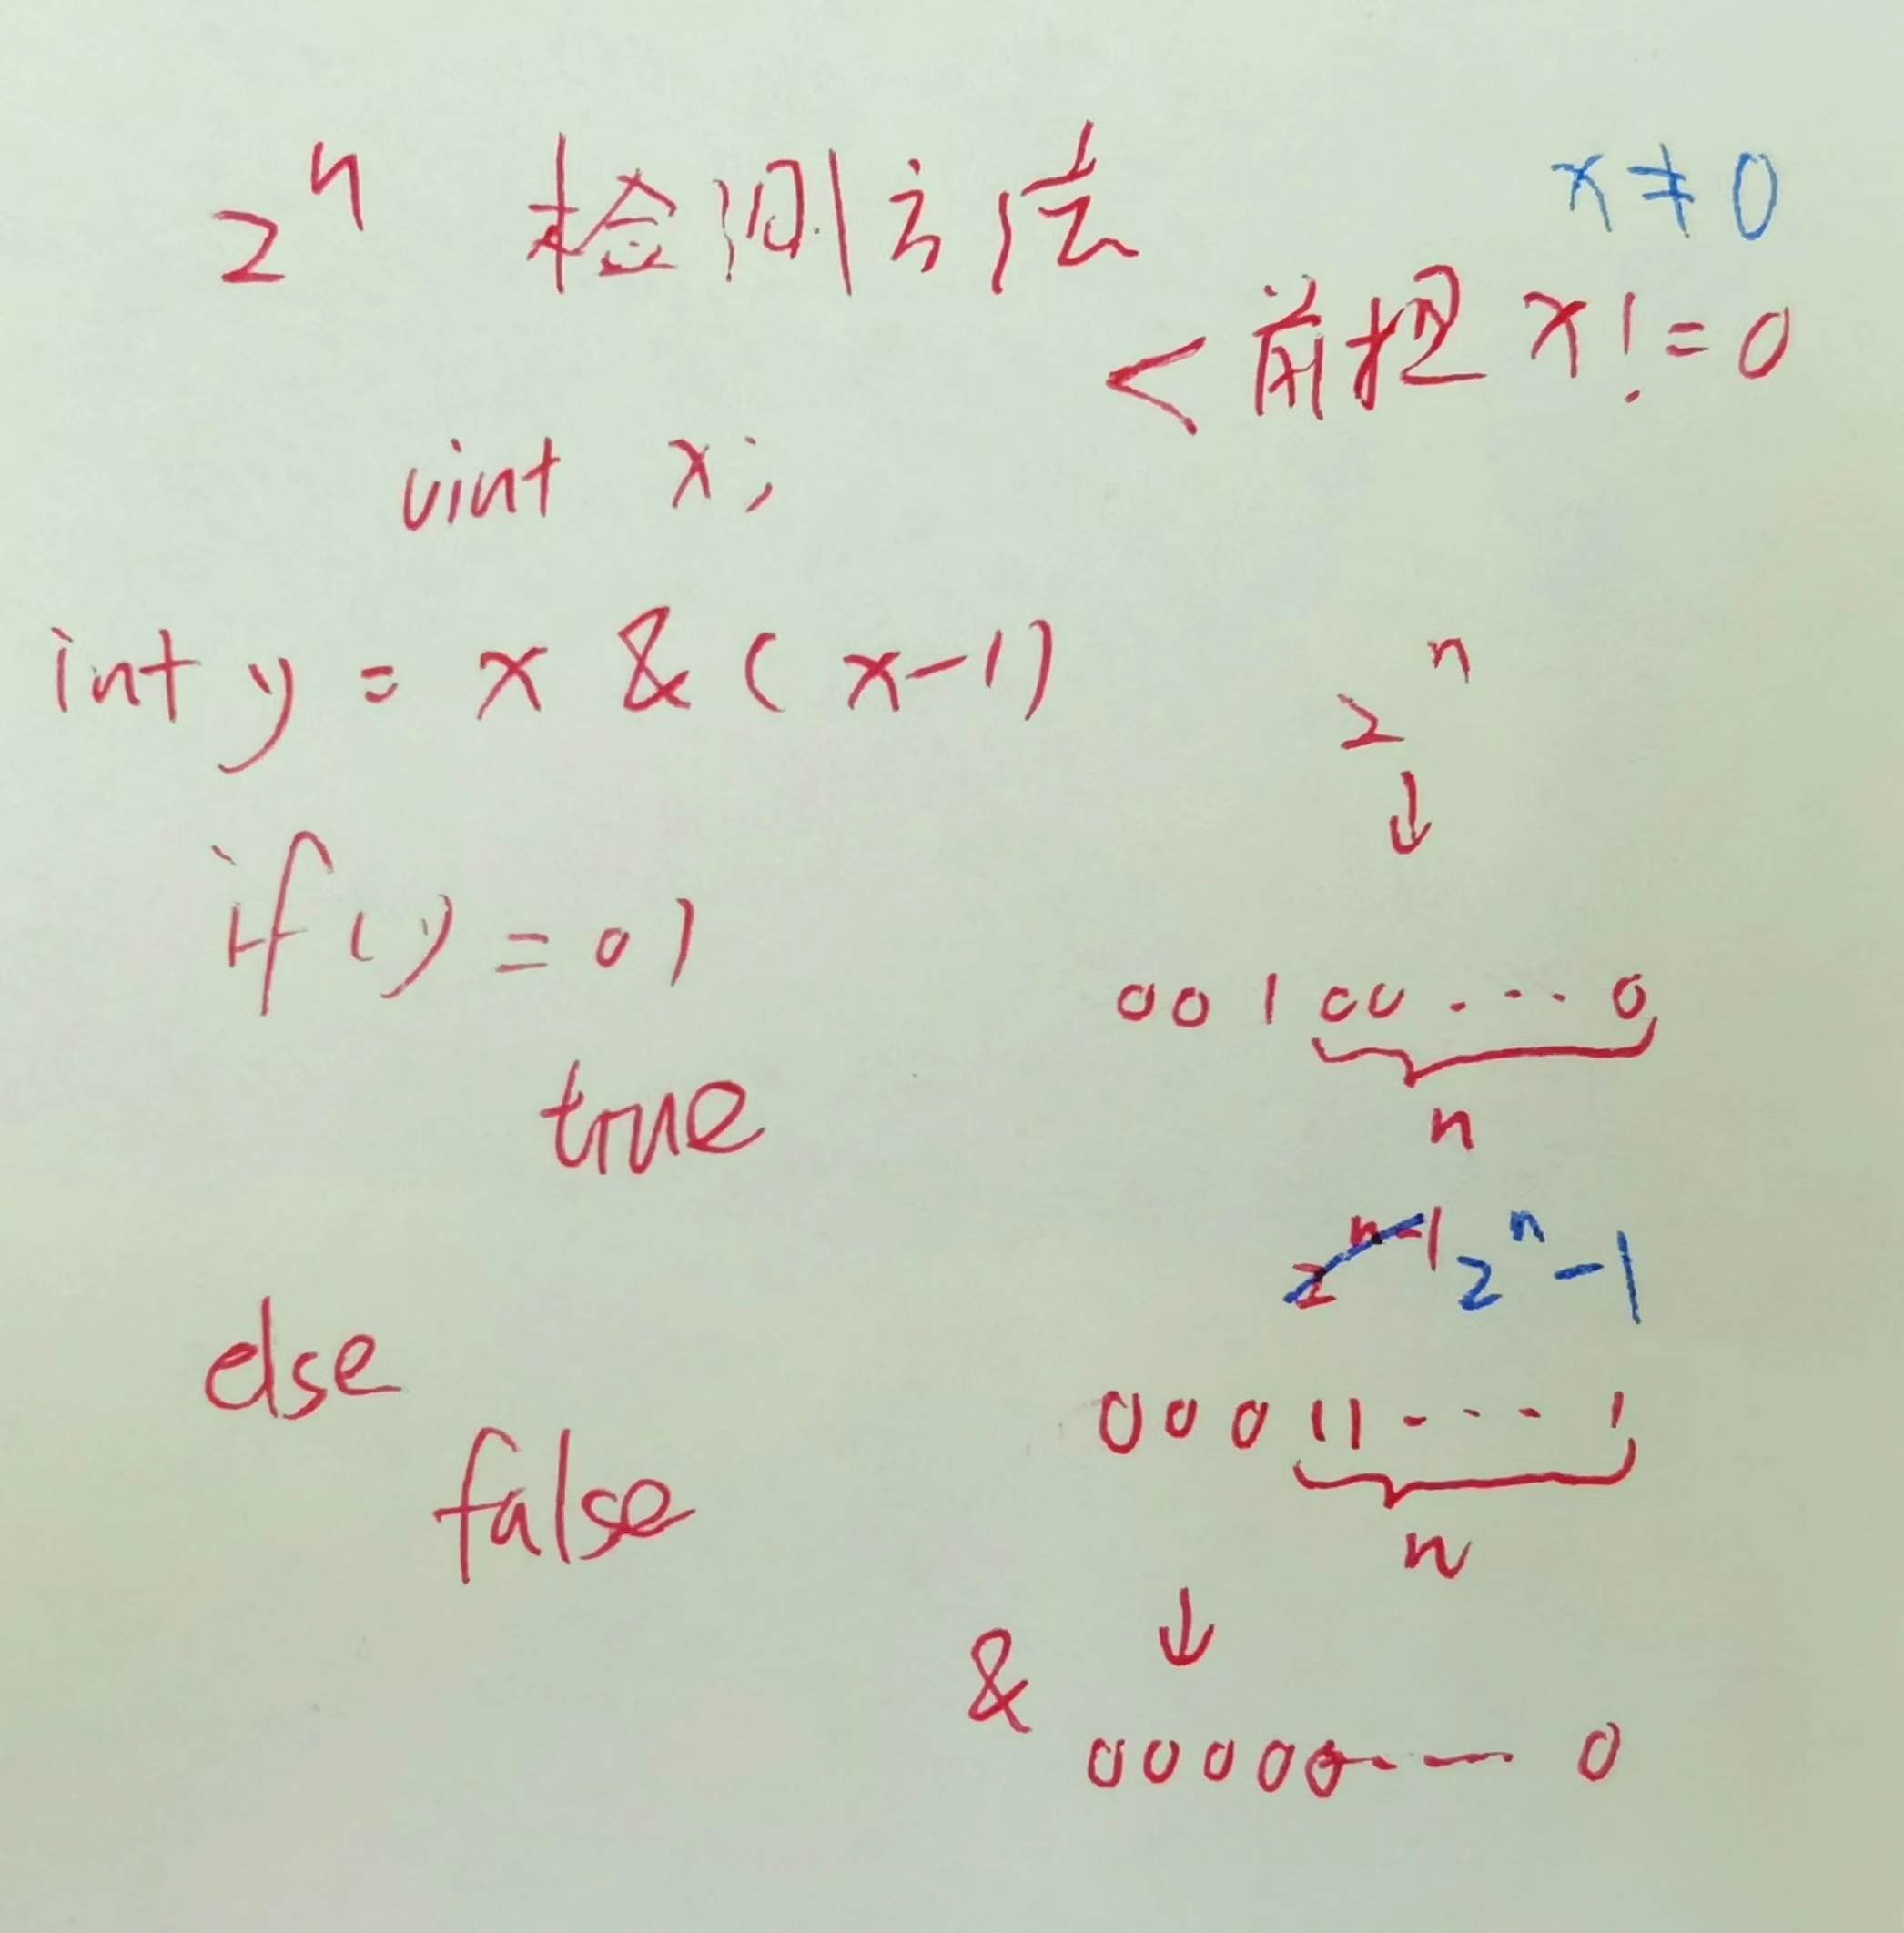 2ⁿ 检测方法
x≠0
<前提 x!=0
uint x;
int y = x & (x-1)
if(y=0)
true
else
false
2ⁿ
↓
00100...0
n
2ⁿ⁻¹ 2ⁿ-1
00011---1
n
↓
&
00000--- 0